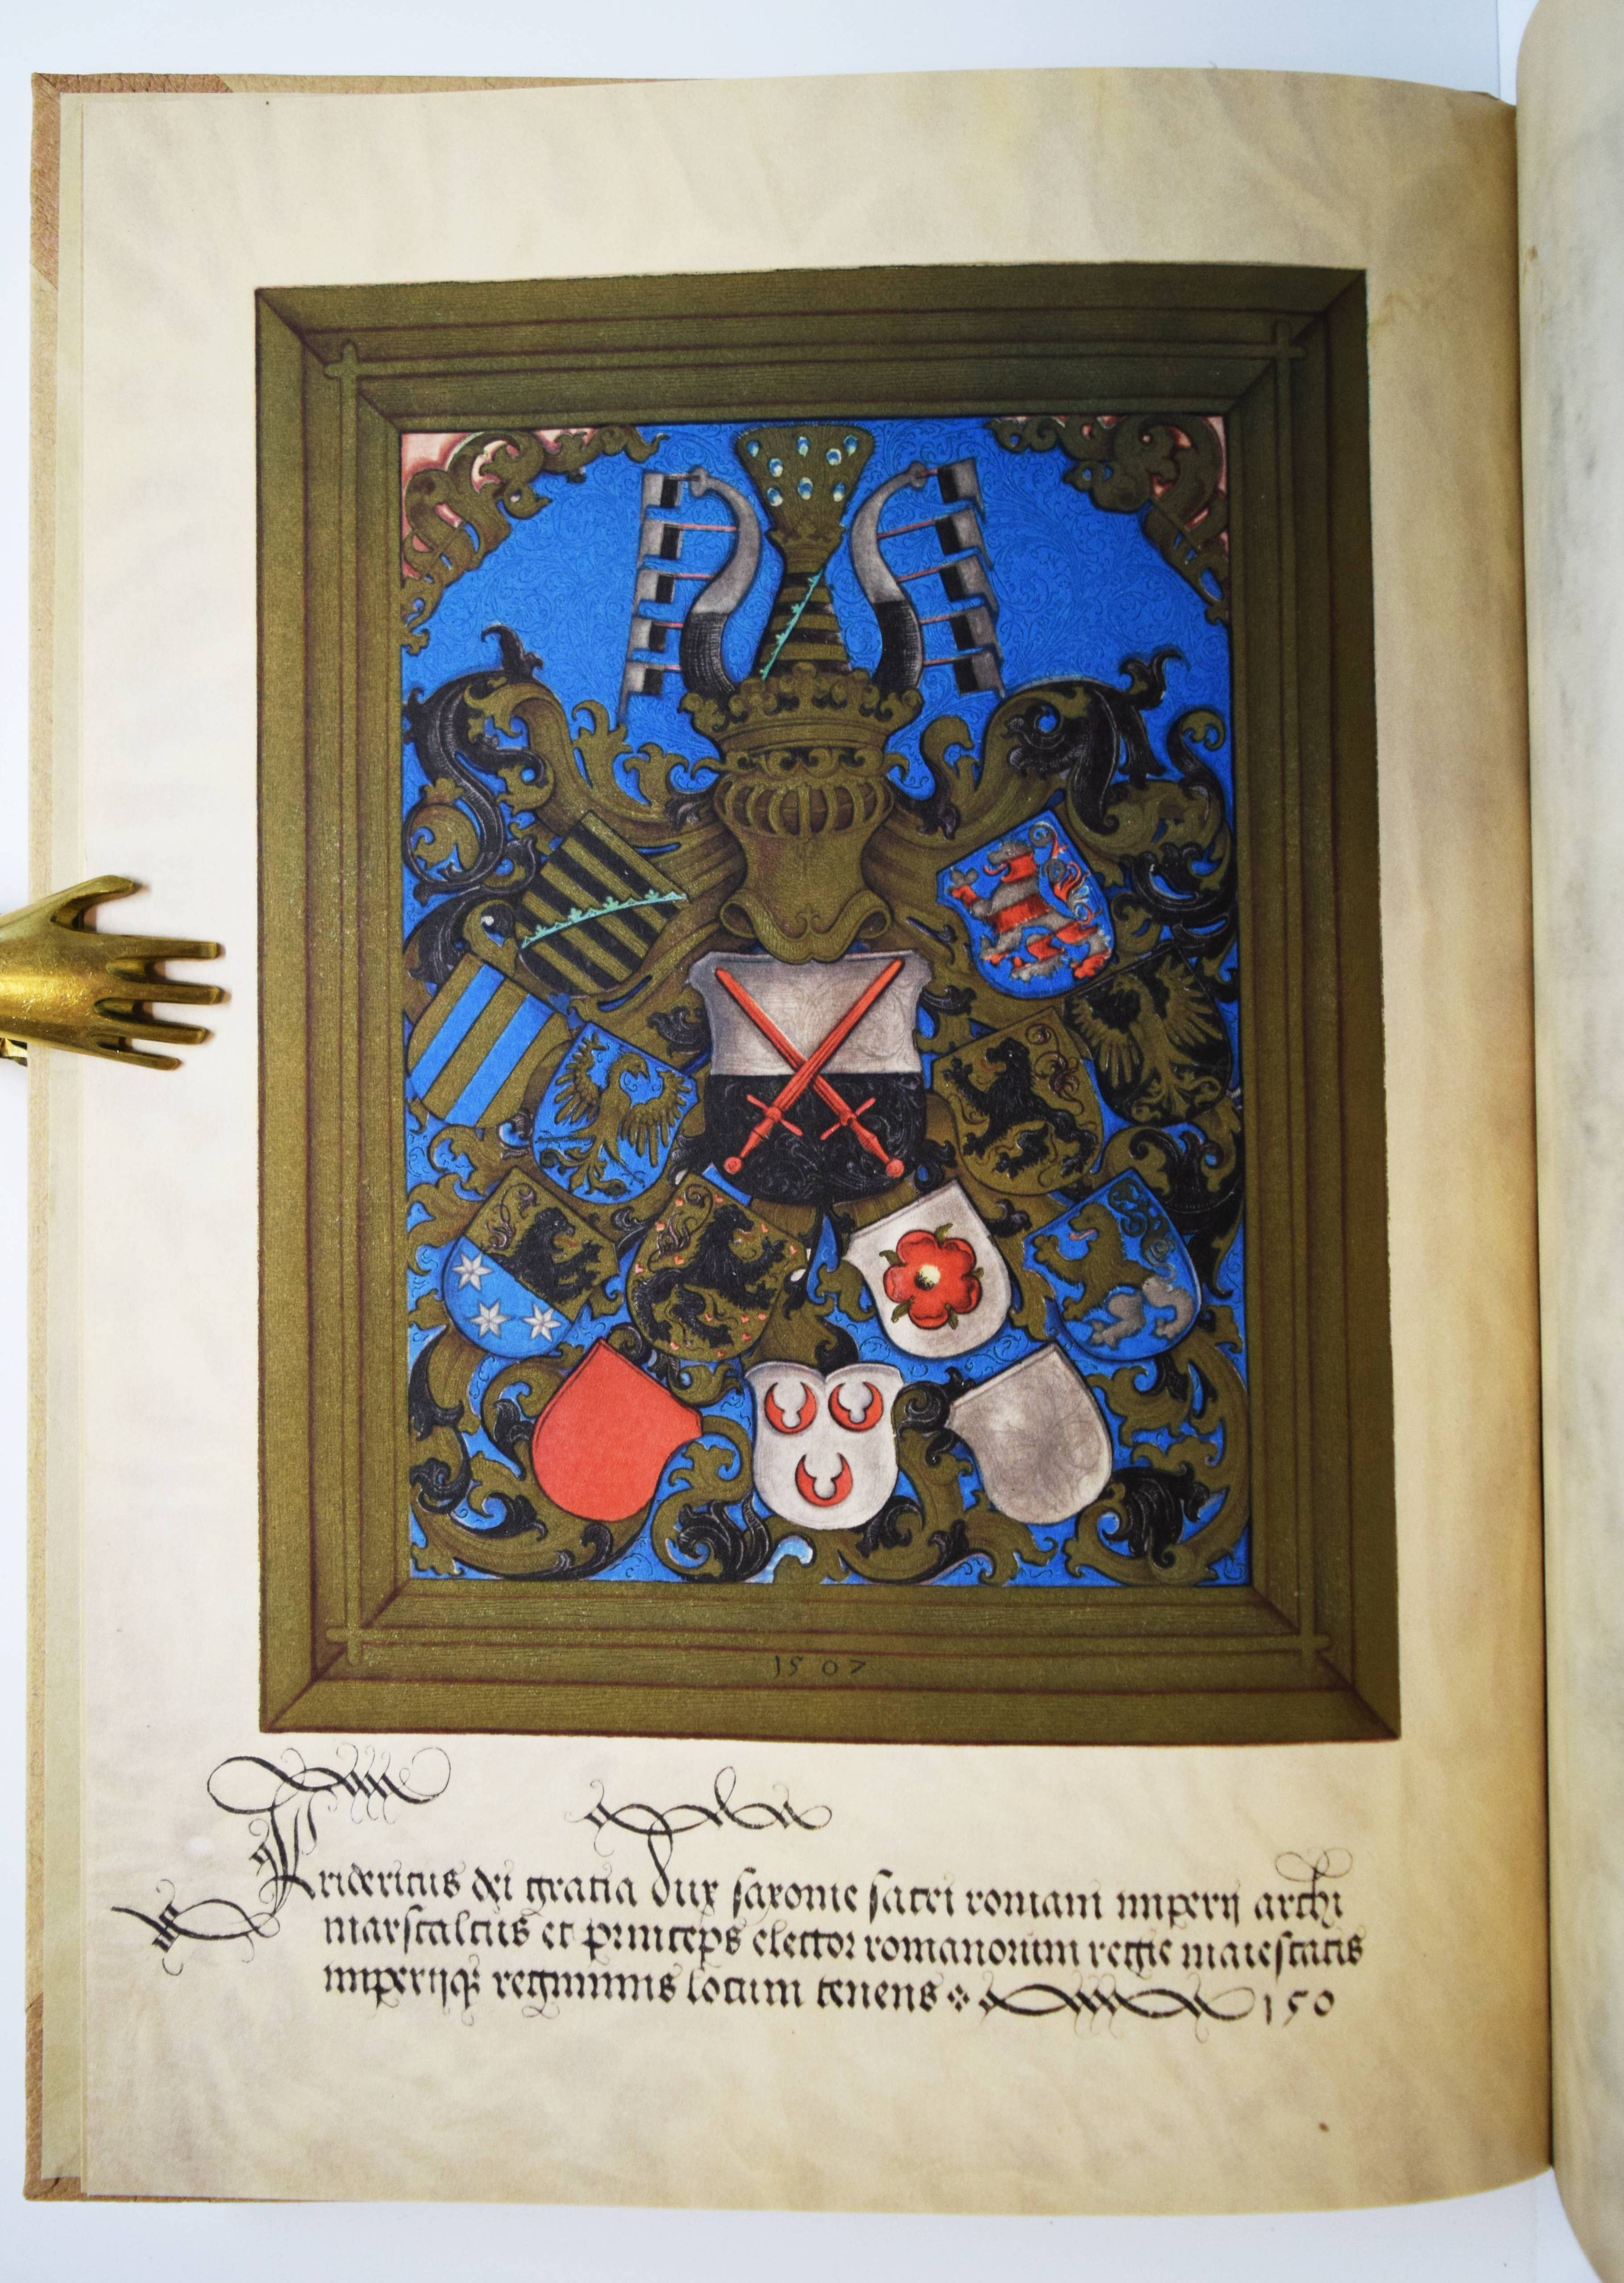 1507
Fridericus dei gratia dux saxonie sacri romani imperij archi
marscalcus et princeps elector romanorum regie maiestatis
imperijq; regiminis locum tenens 150